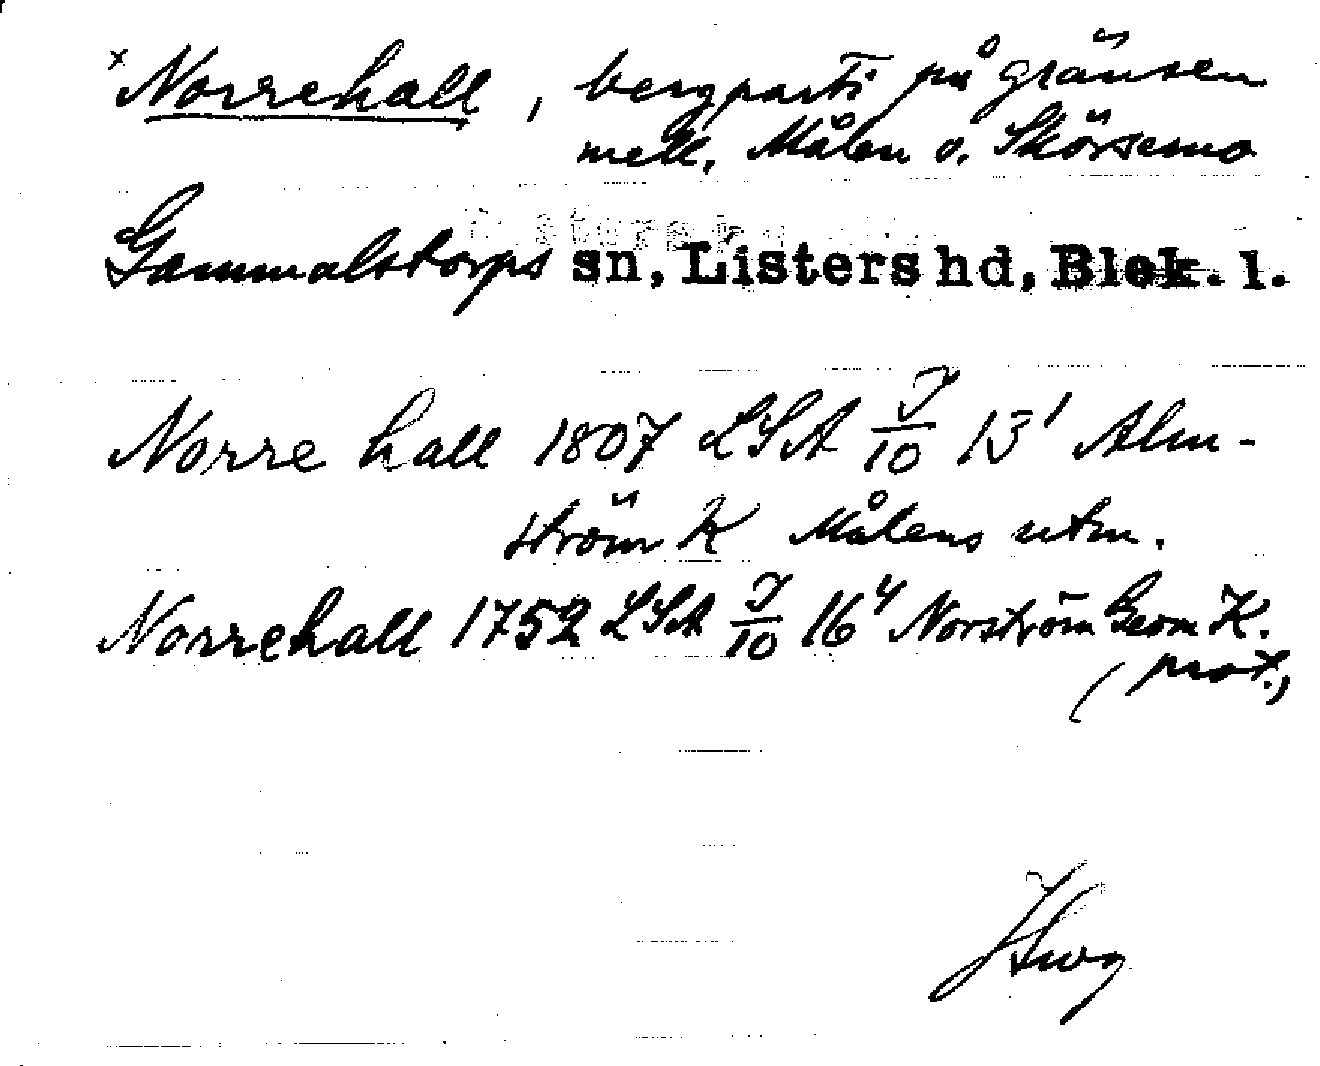 x Norrehall, bergparti på gränsen
mell. Målen o. Skörsemo
Gammalstorps sn, Listers hd, Blek. l.
Norre hall 1807 LSA J/10 13¹ Alm-
ström K Målens utm.
Norrehall 1752 LSA J/10 16⁴ Norström Geom K.
(prot.)